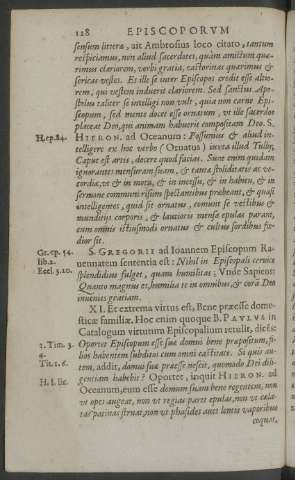 128 EPISCOPORVM
sensum littera, ait Ambrosius loco citato, tantum
respiciamus, non aliud sacerdotes, quàm amictum quærimus
clariorem, verbi gratia, castorinas quærimus &
sericas vestes. Et ille se inter Episcopos credit esse altiorem,
qui vestem induerit clariorem. Sed sanctus Apostolus
taliter se intelligi non vult, quia non carne Episcopum,
sed mente docet esse ornatum, vt ille sacerdos
placeat Deo, qui animam habuerit compositam Deo. S.
H. ep. 84. HIERON. ad Oceanum: Possumus & aliud intelligere
ex hoc verbo (Ornatus) iuxta illud Tullij,
Caput est artis, docere quod facias. Sunt enim quidam
ignorantes mensuram suam, & tanta stoliditatis ac vecordiæ,
vt & in motu, & in incessu, & in habitu, & in
sermone communi risum spectantibus præbeant, & quasi
intelligentes, quid sit ornatus, comunt se vestibus &
munditijs corporis, & lautioris mensæ epulas parant,
cum omnis istiusmodi ornatus & cultus sordibus fœdior
sit.
Gr. ep. 54.
lib. 2. S. GREGORII ad Ioannem Episcopum Rauennatem
sententia est: Nihil in Episcopali ceruice
Eccl. 3. 20. splendidius fulget, quam humilitas; Vnde Sapiens:
Quanto magnus es, humilia te in omnibus, & cora Deo
inuenies gratiam.
XI. Et extrema virtus est, Bene præesse domesticæ
familiæ. Hoc enim quoque B. PAVLVS in
Catalogum virtutum Episcopalium retulit, dicés:
1. Tim. 3.
4.
Tit. 1. 6. Oportet Episcopum esse suæ domui bene præpositum, filios
habentem subditos cum omni castitate. Si quis autem,
addit, domui suæ præesse nescit, quomodo Dei diligentiam
habebit? Oportet, inquit HIERON. ad
H. l. sic. Oceanum, eum esse domum suam bene regentem, non
vt opes augeat, non vt regias paret epulas, non vt cælatas
patinas struat, non vt phasides aues lentis vaporibus
coquat,